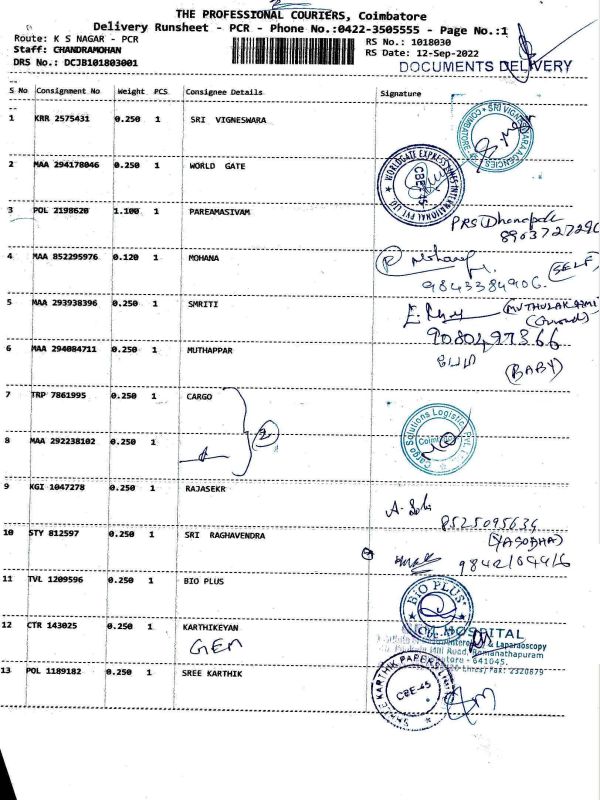 THE PROFESSIONAL COURIERS, Coimbatore
Delivery Runsheet - PCR - Phone No.:0422-3505555 - Page No.:1
Route: K S NAGAR - PCR
RS No.: 1018030
Staff: CHANDRAMOHAN
RS Date: 12-Sep-2022
DRS No.: DCJB101803001
DOCUMENTS DELIVERY
S No Consignment No Weight PCS Consignee Details Signature
1 KRR 2575431 0.250 1 SRI VIGNESWARA
COIMBATORE
2 MAA 294178046 0.250 1 WORLD GATE
WORLDGATE EXPRESS LINES INTERNATIONAL PVT LTD
CBE-45
3 POL 2198620 1.100 1 PAREAMASIVAM
8903727290
4 MAA 852295976 0.120 1 MOHANA
Mohana
(SELF)
9843384906.
5 MAA 293938396 0.250 1 SMRITI
9080497366
6 MAA 294084711 0.250 1 MUTHAPPAR
(BABY)
7 TRP 7861995 0.250 1 CARGO
Cargo Solutions Logistics
2
8 MAA 292238102 0.250 1
9 KGI 1047278 0.250 1 RAJASEKR
8525095634
10 STY 812597 0.250 1 SRI RAGHAVENDRA
(YASODHA)
11 TVL 1209596 0.250 1 BIO PLUS
BIO PLUS
12 CTR 143025 0.250 1 KARTHIKEYAN
GEM
HOSPITAL
& Laparoscopy
Ramanathapuram
641045.
2320879
13 POL 1189182 0.250 1 SREE KARTHIK
SREE KARTHIK PAPERS
CBE-45